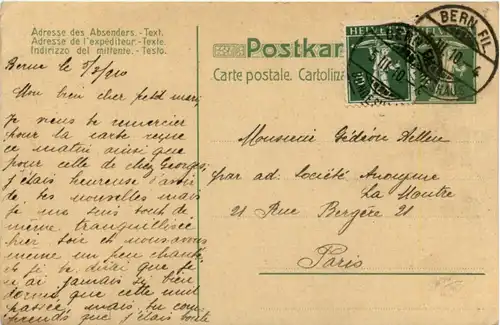 Adresse des Absenders. -Text.
Adresse de l'expéditeur. -Texte.
Indirizzo del mittente. -Testo.
Postkar
Carte postale. Cartolina
HELVETIA
BERN FIL.
Berne le 5/3/910
Mon bien cher petit mari,
Je veux te remercier
pour la carte reçue
ce matin ainsi que
pour celle de chez Georges;
j'étais heureuse d'avoir
de tes nouvelles mais
je me suis tout de
même tranquillisée
hier soir et nous avons
même un peu chanté
et je te dirai que je
n'ai jamais si bien
dormi que cette nuit
passée, mais tu com
prends que j'étais
Monsieur Gédéon
par ad. Société Anonyme
La Montre
21 Rue Bergère 21
Paris